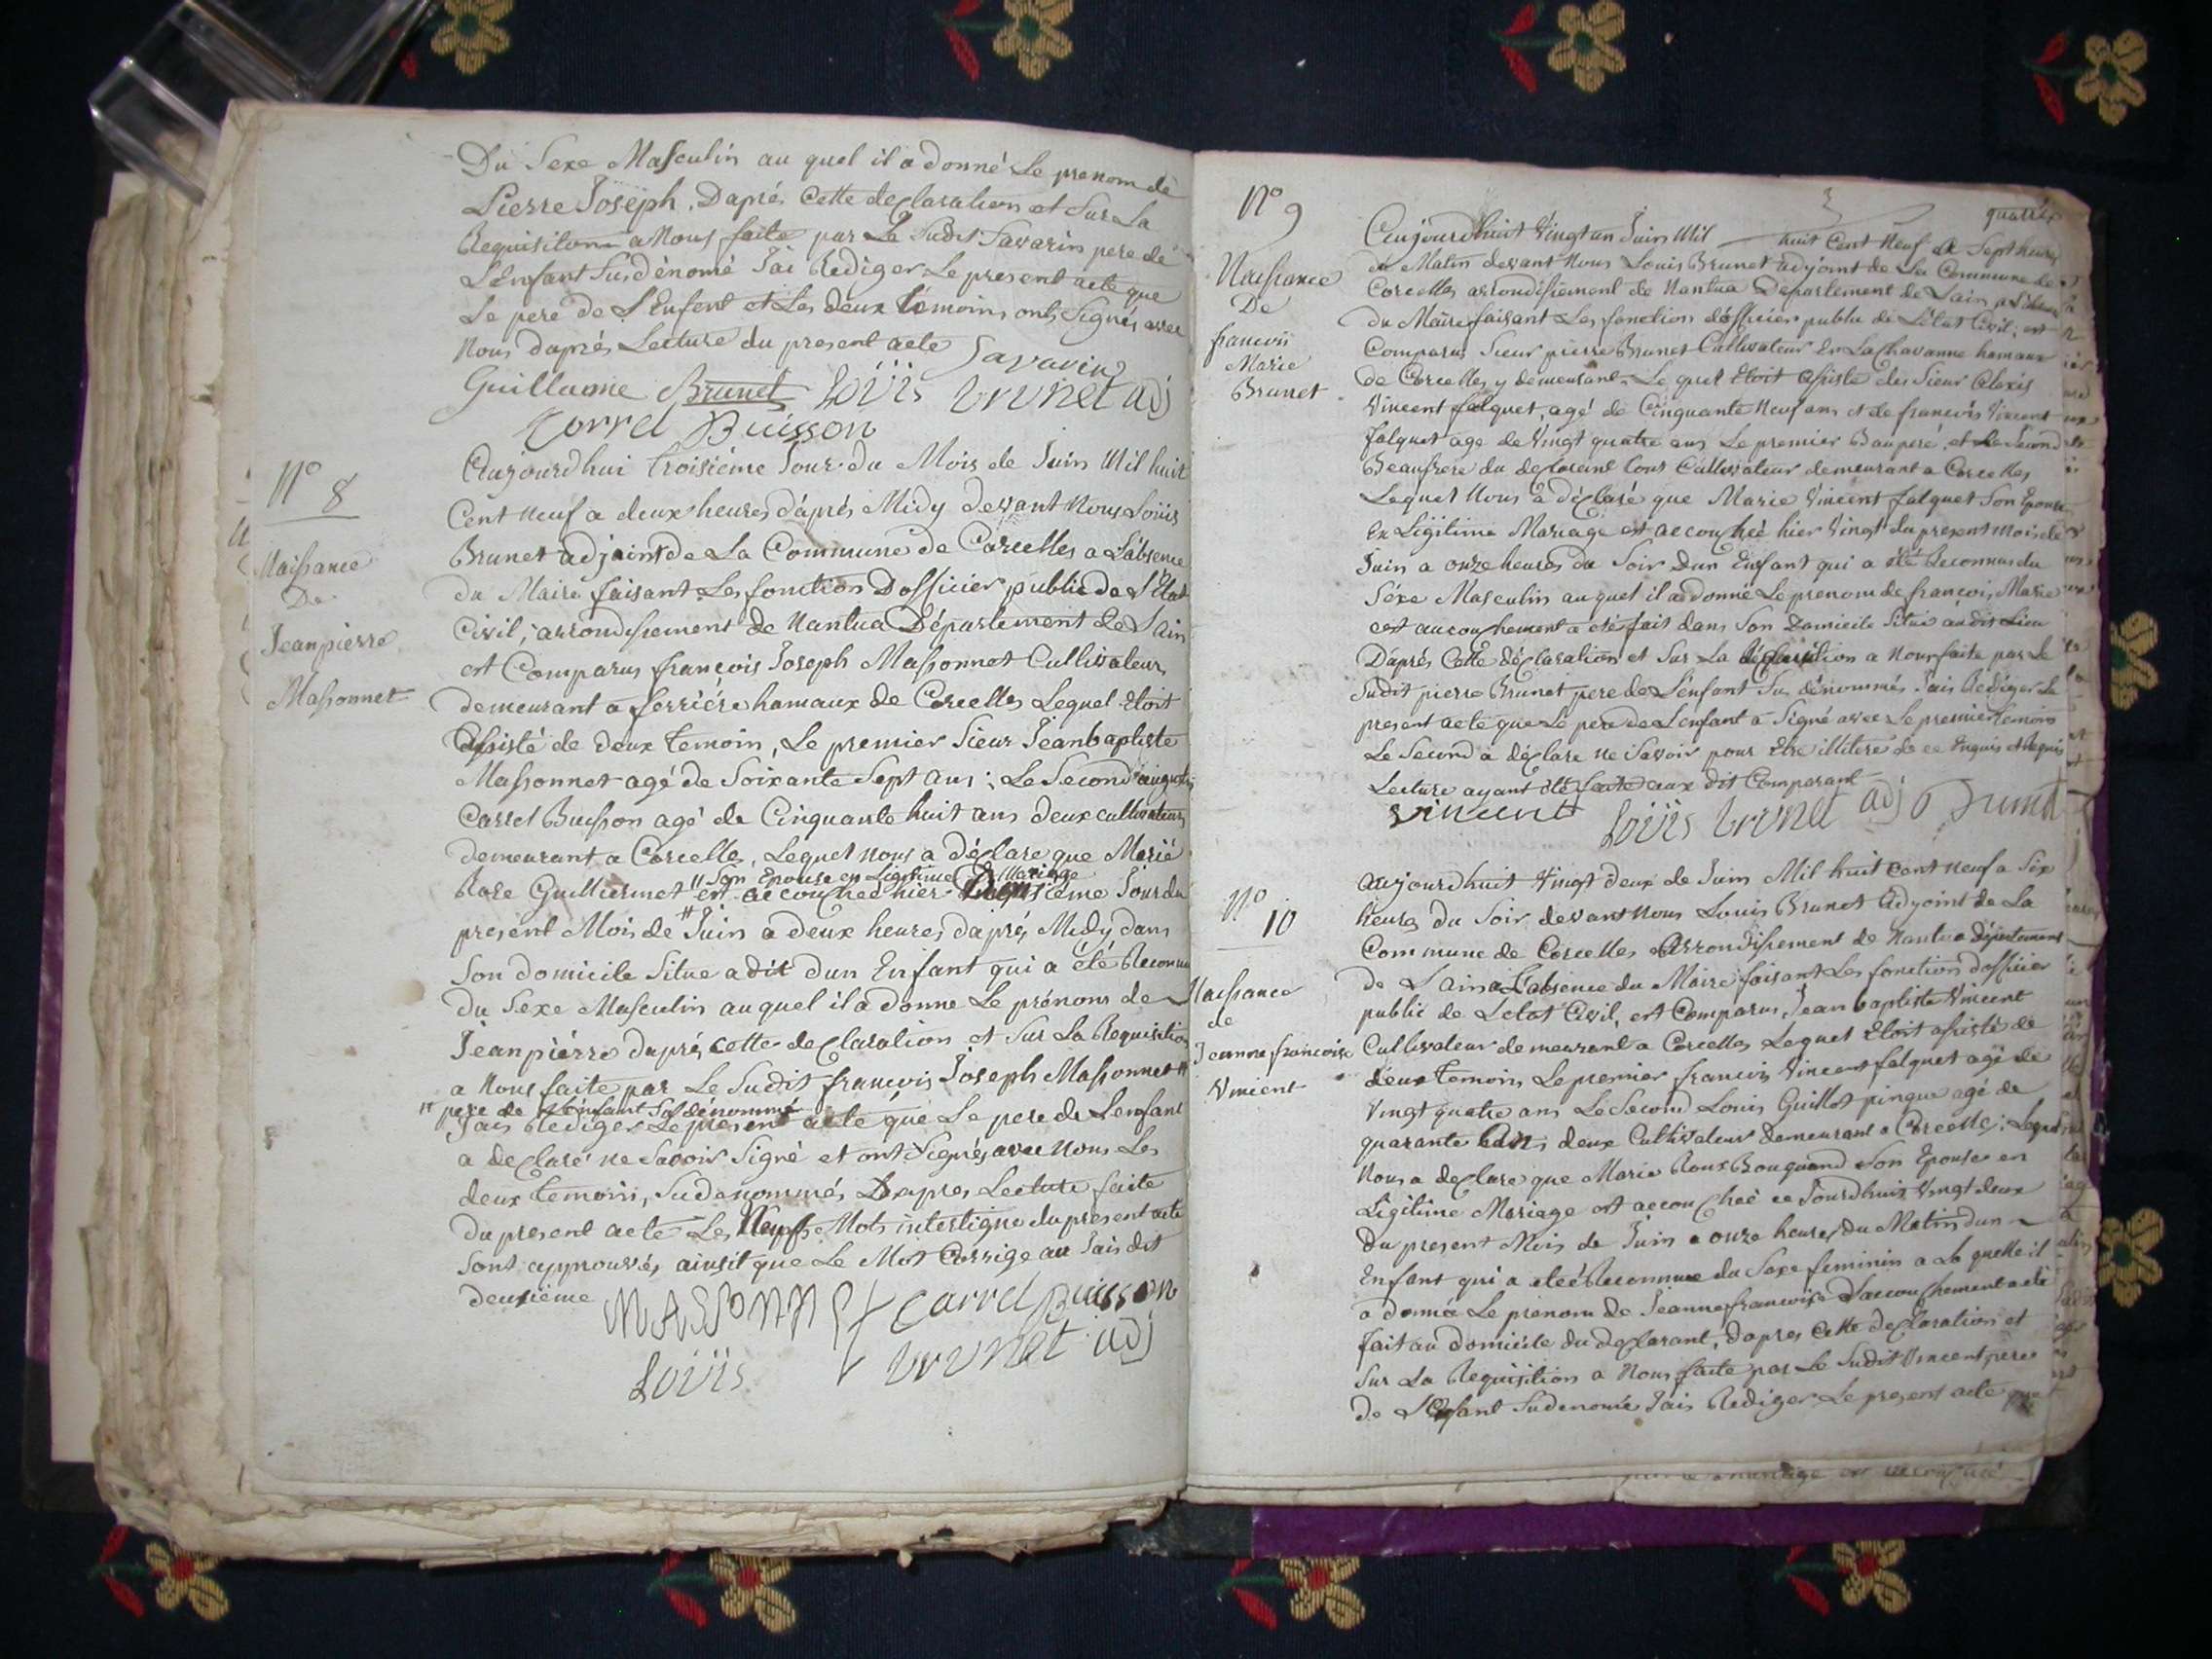 Du Sexe Masculin au quel il a donné Le prenom de
Pierre Joseph. Daprés Cette declaration et Sur La
Requisitone a Nous faite par Le Sudit Savarin pere de
L'Enfant Susdénomé Jai Rediger Le present acte que
Le pere de L'Enfent et Les deux témoins onts Signés avec
Nous daprés Lecture du present acte Savarin
Guillaume Brunet Loüis brunet adj
Correl Buisson
N° 8
Naissance
De
Jeanpierre
Massonnet
Aujourdhui troisiéme Jour du Mois de Juin Mil huit
Cent neuf a deux heures d'aprés Midy devant Nous Loüis
Brunet adjoint de La Commune de Corcelles a L'absence
du Maire faisant Les fonction Dofficier public de L'État
Civil, arrondissement de Nantua Département de Lain
est Comparus françois Joseph Massonnet Cultivateur
demeurant a ferriére hamaux de Corcelles Lequel Etoit
Assisté de deux temoin, Le premier Sieur Jeanbaptiste
Massonnet agé de Soixante Sept ans; Le Second augustin
Carrel Buisson agé de Cinquante huit ans deux cultivateurs
demeurant a Corcelles, Lequel nous a déclare que Marie
Rose Guillermet " Son Epouse en Ligitime Mariage
est accouchée hier Deuxiéme Jour du
present Mois de " Juin a deux heures daprés Midy dans
Son domicile Situe a dit dun Enfant qui a été Reconnu
du Sexe Masculin auquel il a donne Le prénom de
Jeanpiérre daprés cette declaration et Sur La Requisition
a Nous faite par Le Sudit francois Joseph Massonnet "
" pere de L'énfant Sus dénommé
Jais Rédiger Le présent acte que Le pere de Lenfant
a declaré ne Savoir Signé et ont Signés avec Nous Les
deux temoin, Sudenommés Dapres Lecture faite
du present acte Les Neufs Mots interligne du present acte
Sont approuvés ainsit que Le Mot Corrige au Jais dit
deuxieme MASSONNET Carrel Buisson
Loüis brunet adj
N° 9
Naissance
De
francois
Marie
Brunet
quatre
Aujourdhuit Vingt un Juin Mil huit Cent Neuf a Sept heures
du Matin devant Nous Louis Brunet adjoint de La Commune de
Corcelles arrondissement de Nantua Departement de Lain a L'absence
du Maire faisant Les fonction dofficier public de L'état Civil, est
Comparus Sieur pierre Brunet Cultivateur En La Chavanne hamaux
de Corcelles y demeurant. Le quel Etoit assiste des Sieur Alexis
Vincent falquet, agé de Cinquante Neuf ans et de francois Vincent
falquet age de Vingt quatre ans Le premier Baupere et Le Second
Beaufrere du declarent tous Cultivateur demeurant a Corcelles
Lequel Nous a déclaré que Marie Vincent falquet Son Epouse
En Légitime Mariage est accouchée hier Vingt du present mois de
Juin a onze heures du Soir Dun Enfant qui a été Reconnus du
Séxe Masculin au quel il a donné Le prenom de francois Marie
cet aucouchement a été fait dans Son Domicile Situé audit Lieu
D'aprés Cette déclaration et Sur La déclaration a Nous faite par Le
Sudit pierre Brunet pere de L'enfant Sus dénommés Jais Rediger Le
present acte que Le pere de L'enfant a Signé avec Le premier temoins
Le Second a déclare ne Savoir pour Etre illitere de ce Enquis et Requis
Lecture ayant été faite aux dit Comparant
vincent Loüis brunet adj Brunet
N° 10
Naissance
de
Jeanne francoise
Vincent
aujourdhuit Vingt deux de Juin Mil huit cent neuf a Six
heures du Soir devant Nous Louis Brunet Adjoint de La
Commune de Corcelles Arrondissement de Nantua département
de Lain a L'absence du Maire faisant Les fonction dofficier
public de Letat Civil, est Comparus, Jean baptiste Vincent
Cultivateur demeurant a Corcelles Lequel Etoit assisté de
deux temoin Le premier francois Vincent falquet agé de
Vingt quatre ans Le Second Louis Guillot pingue agé de
quarante deux Cultivateur demeurant a Corcelle; Lequel
Nous a declare que Marie Roux Bouquand Son Epouse en
Ligitime Mariage est accouchée ce Jourdhuit Vingt deux
Du present Mois de Juin a onze heures du Matin dun
Enfant qui a été Reconnue du Sexe feminin a La quelle il
a donnée Le prenom de Jeanne francoise L'accouchement a été
fait au domicile du declarant, dapres Cette declaration et
Sur La Requisition a Nous faite par Le Sudit Vincent pere
de L'Enfant Sudenomé Jais Rediger Le present acte que